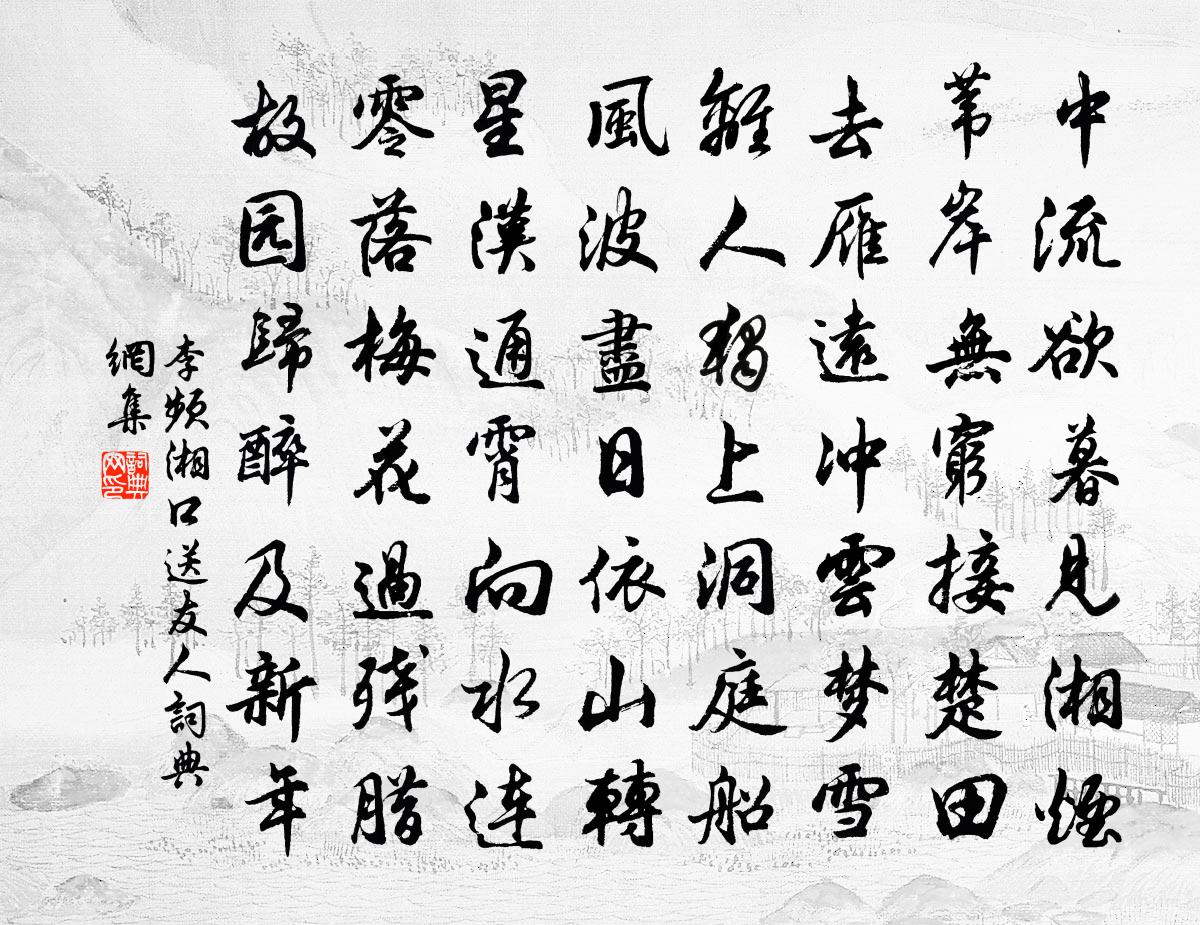 中流欲暮見湘煙
葦岸無窮接楚田
去雁遠冲雲梦雪
離人獨上洞庭船
風波盡日依山轉
星漢通霄向水连
零落梅花過残腊
故园歸醉及新年
李频湘口送友人詞典
網集
詞典网印